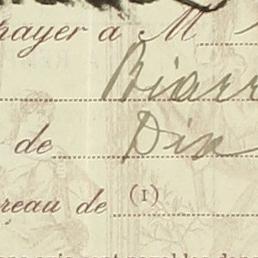 payer à M
Biarr
de Dix
reau de (1)